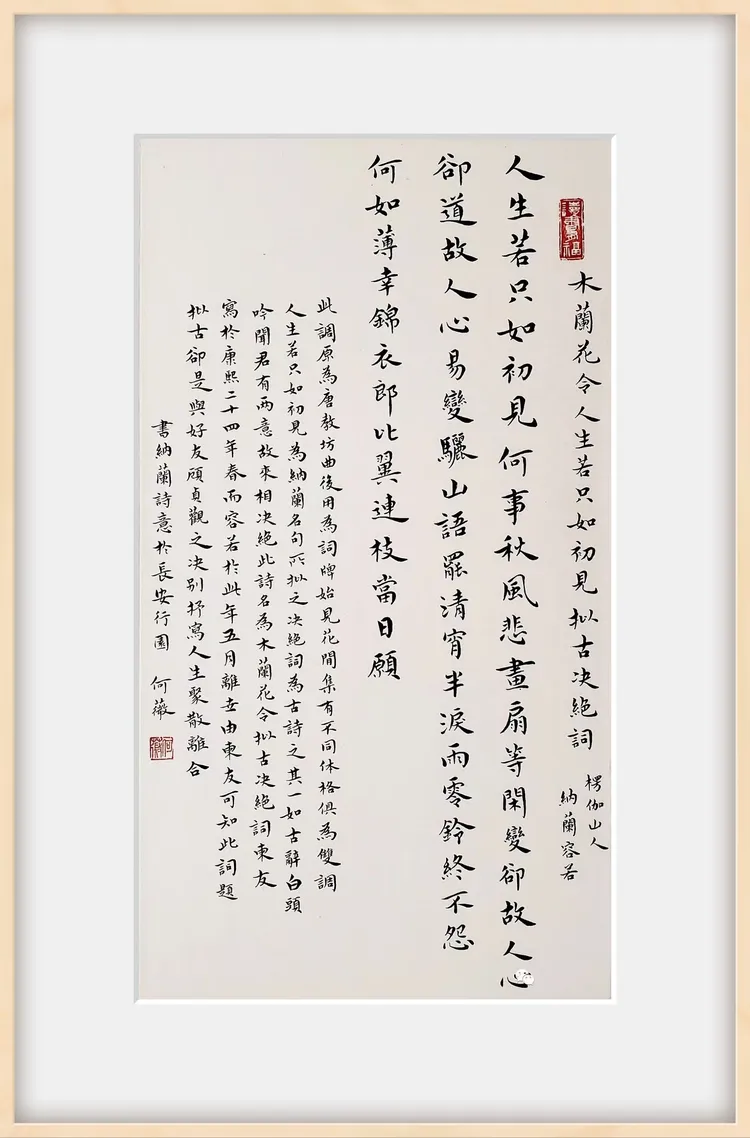 讀書福
木蘭花令人生若只如初見拟古决絕詞
楞伽山人
納蘭容若
人生若只如初見何事秋風悲畫扇等閑變卻故人心
卻道故人心易變驪山語罷清宵半淚雨零鈴終不怨
何如薄幸錦衣郎比翼連枝當日願
此調原為唐教坊曲後用為詞牌始見花間集有不同体格俱為雙調
人生若只如初見為納蘭名句所拟之决絕詞為古詩之其一如古辭白頭
吟聞君有兩意故來相决絕此詩名為木蘭花令拟古决絕詞柬友
寫於康熙二十四年春而容若於此年五月離世由柬友可知此詞題
拟古卻是與好友顾貞觀之决別抒寫人生聚散離合
書納蘭詩意於長安行園 何薇